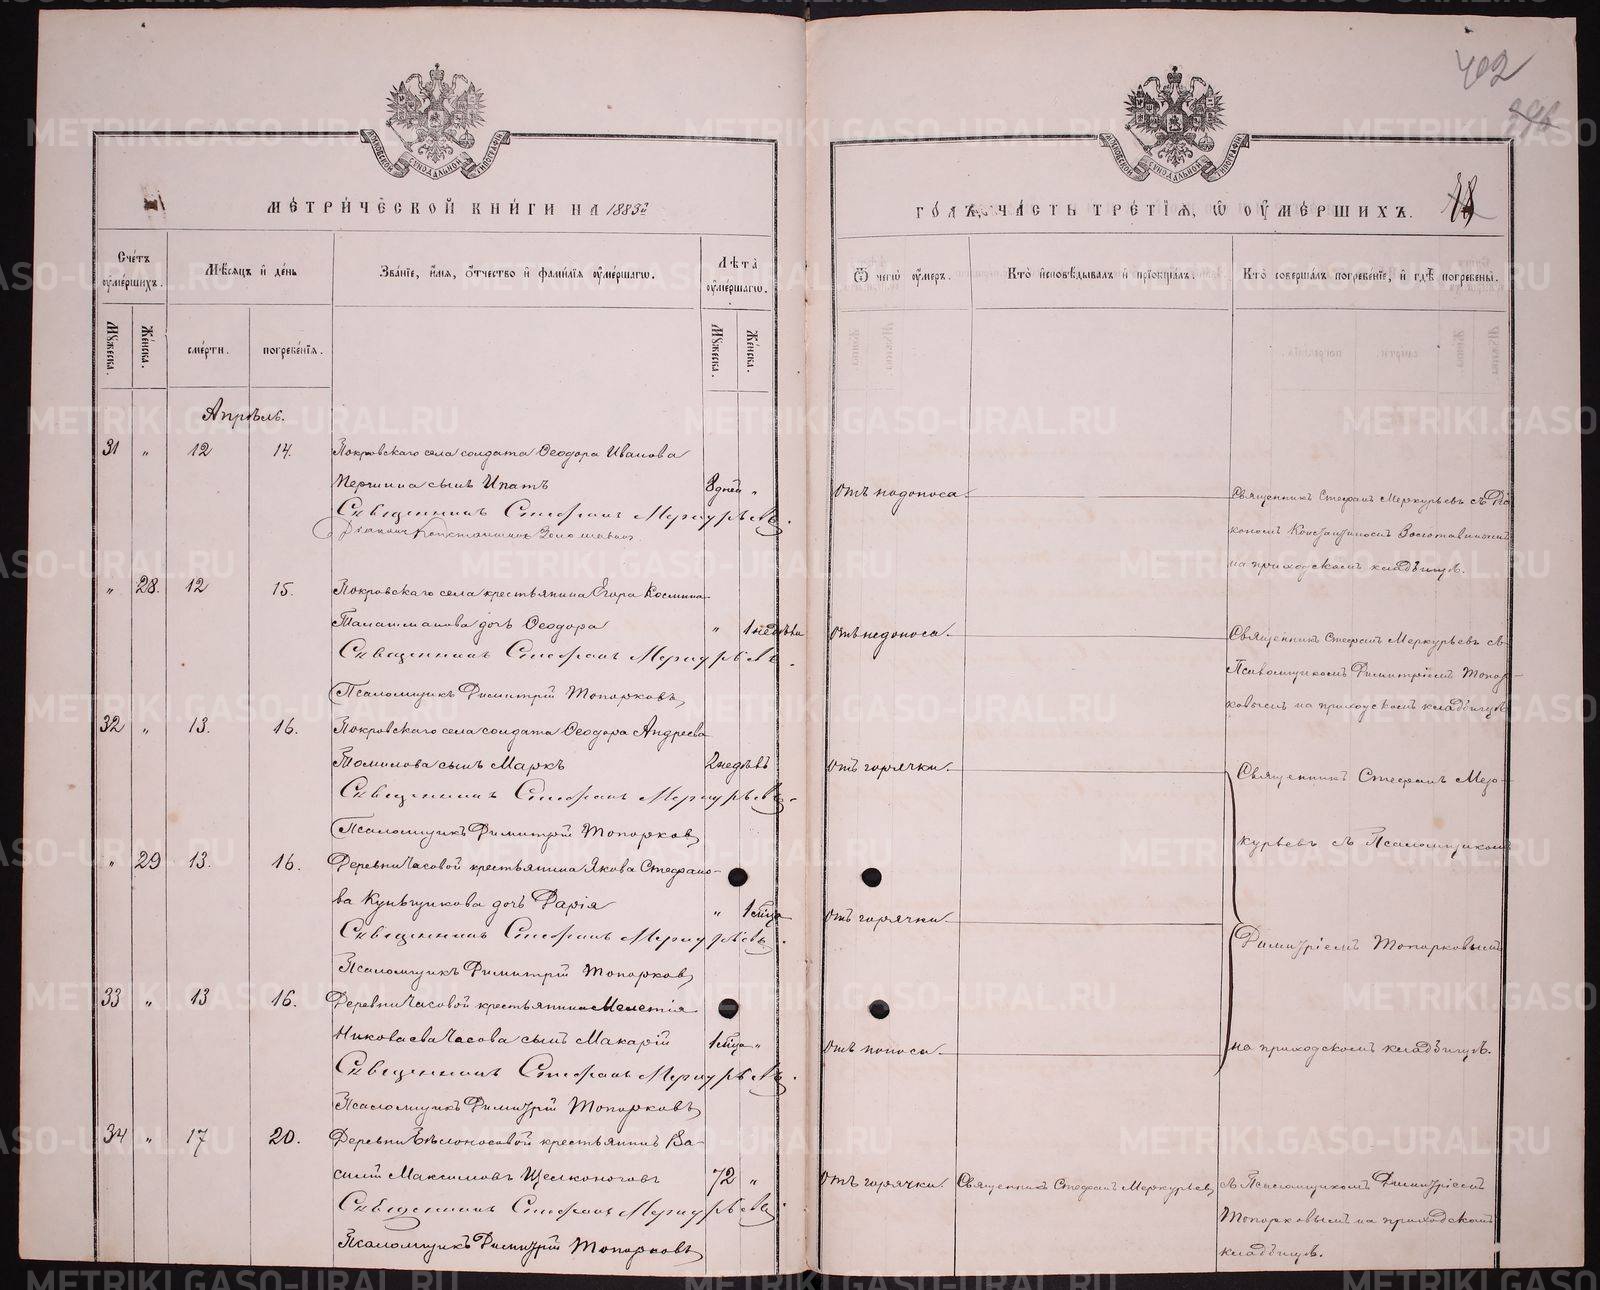 402
МЕТРИЧЕСКОЙ КНИГИ НА 1883й
ГОДЪ, ЧАСТЬ ТРЕТІЯ, Ѡ ОУМЕРШИХЪ.
Счетъ оумершихъ.
Мѣсяцъ и день
Званіе, имя, отчество и фамилія оумершагѡ.
Лѣта оумершагѡ.
Ѿ чегѡ оумеръ.
Кто исповѣдывалъ и пріобщалъ.
Кто совершалъ погребеніе, и гдѣ погребены.
Мужеска.
Женска.
смерти.
погребенія.
Мужеска.
Женска.
Апрѣль.
31 " 12 14. Покровскаго села солдата Ѳеодора Иванова
Першина сынъ Ипатъ 8 дней " Отъ недоноса. Священникъ Стефанъ Меркурьевъ съ Діа
Священникъ Стефанъ Меркурьевъ.
Діаконъ Константинъ
кономъ Константиномъ
на приходскомъ кладбищѣ.
" 28. 12 15. Покровскаго села крестьянина Егора Космина
дочь Ѳеодора " 1 недѣли Отъ недоноса. Священникъ Стефанъ Меркурьевъ съ
Священникъ Стефанъ Меркурьевъ.
Псаломщикомъ Димитріемъ Топор-
Псаломщикъ Димитрій Топорковъ
ковымъ на приходскомъ кладбищѣ
32 " 13. 16. Покровскаго села солдата Ѳеодора Андреева
Томилова сынъ Маркъ 2 недѣль Отъ горячки. Священникъ Стефанъ Мер-
Священникъ Стефанъ Меркурьевъ.
Псаломщикъ Димитрій Топорковъ
курьевъ съ Псаломщикомъ
" 29 13. 16. Деревни Часовой крестьянина Якова Стефано-
ва Кузнецова дочь Дарія " 1 мѣца Отъ горячки.
Священникъ Стефанъ Меркурьевъ.
Димитріемъ Топорковымъ
Псаломщикъ Димитрій Топорковъ
33 " 13 16. Деревни Часовой крестьянина Мелетія
Николаева Часова сынъ Макарій 1 мѣца " Отъ поноса. на приходскомъ кладбищѣ.
Священникъ Стефанъ Меркурьевъ.
Псаломщикъ Димитрій Топорковъ
34 " 17 20. Деревни Бѣлоносовой крестьянинъ Ва-
силій Максимовъ Щелконоговъ 72 " Отъ горячки. Священникъ Стефанъ Меркурьевъ съ Псаломщикомъ Димитріемъ
Священникъ Стефанъ Меркурьевъ
Топорковымъ на приходскомъ
Псаломщикъ Димитрій Топорковъ
кладбищѣ.
METRIKI.GASO-URAL.RU